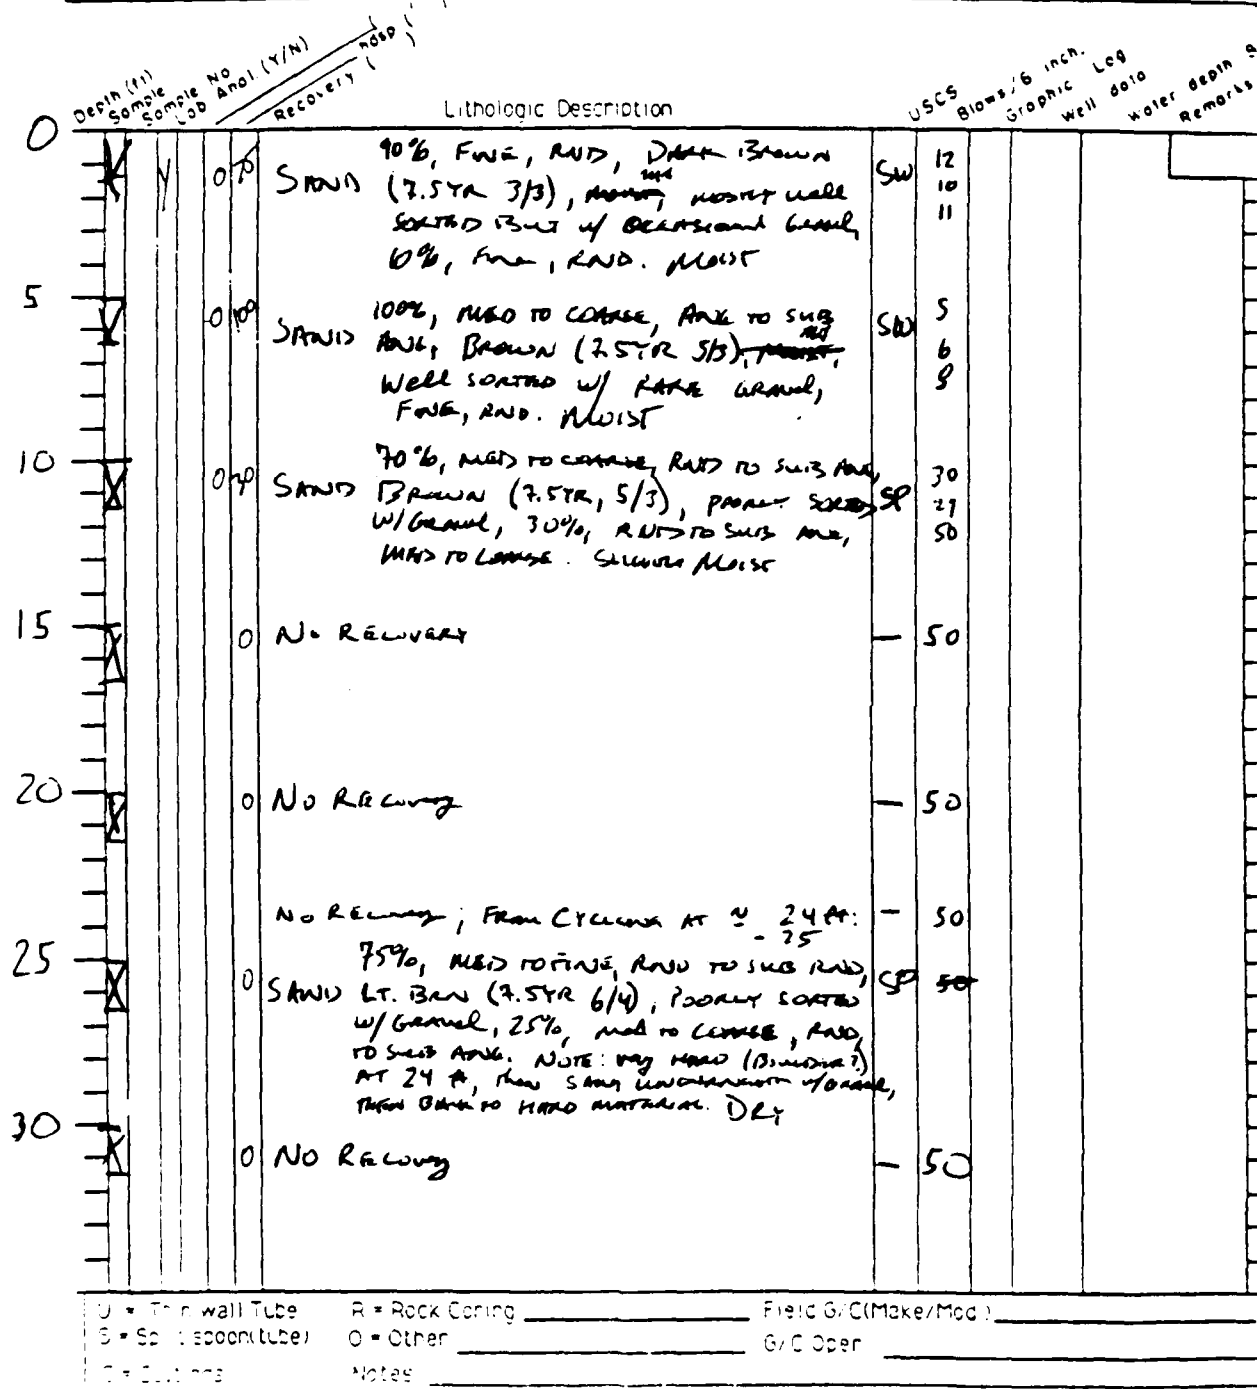 Depth (ft)
Sample
Sample No
Lab Anal. (Y/N)
Recovery ( )
Lithologic Description
USCS
Blows/6 inch.
Graphic Log
Well data
Water depth
Remarks
0
Y 0 70 SAND 90%, FINE, RND, DARK BROWN SW 12
(7.5YR 3/3), MOSTLY WELL 10
SORTED BUT W/ OCCASIONAL GRAVEL, 11
10%, FINE, RND. MOIST
5
0 100 SAND 100%, MED TO COARSE, ANG TO SUB SW 5
ANG, BROWN (7.5YR 5/3), 6
WELL SORTED W/ RARE GRAVEL,
FINE, RND. MOIST
10
0 SAND 70%, MED TO COARSE, RND TO SUB ANG, SP 30
BROWN (7.5YR, 5/3), POORLY SORTED
W/ GRAVEL, 30%, RND TO SUB ANG, 50
MED TO COARSE. MOIST
15
0 NO RECOVERY — 50
20
0 NO RECOVERY — 50
NO RECOVERY; FROM CYCLONE AT ~ 24 FT: - 50
- 25
25
0 SAND 75%, MED TO FINE, RND TO SUB RND, SP 50
LT. BRN (7.5YR 6/4), POORLY SORTED
W/ GRAVEL, 25%, MED TO COARSE, RND,
TO SUB ANG. NOTE: VERY HARD (BOULDER?)
AT 24 ft, then
THEN BACK TO HARD MATERIAL. DRY
30
0 NO RECOVERY — 50
U = Thin wall Tube R = Rock Coring Field G/C(Make/Mod.)
S = Split spoon(tube) O = Other G/C Oper
C = Cuttings Notes